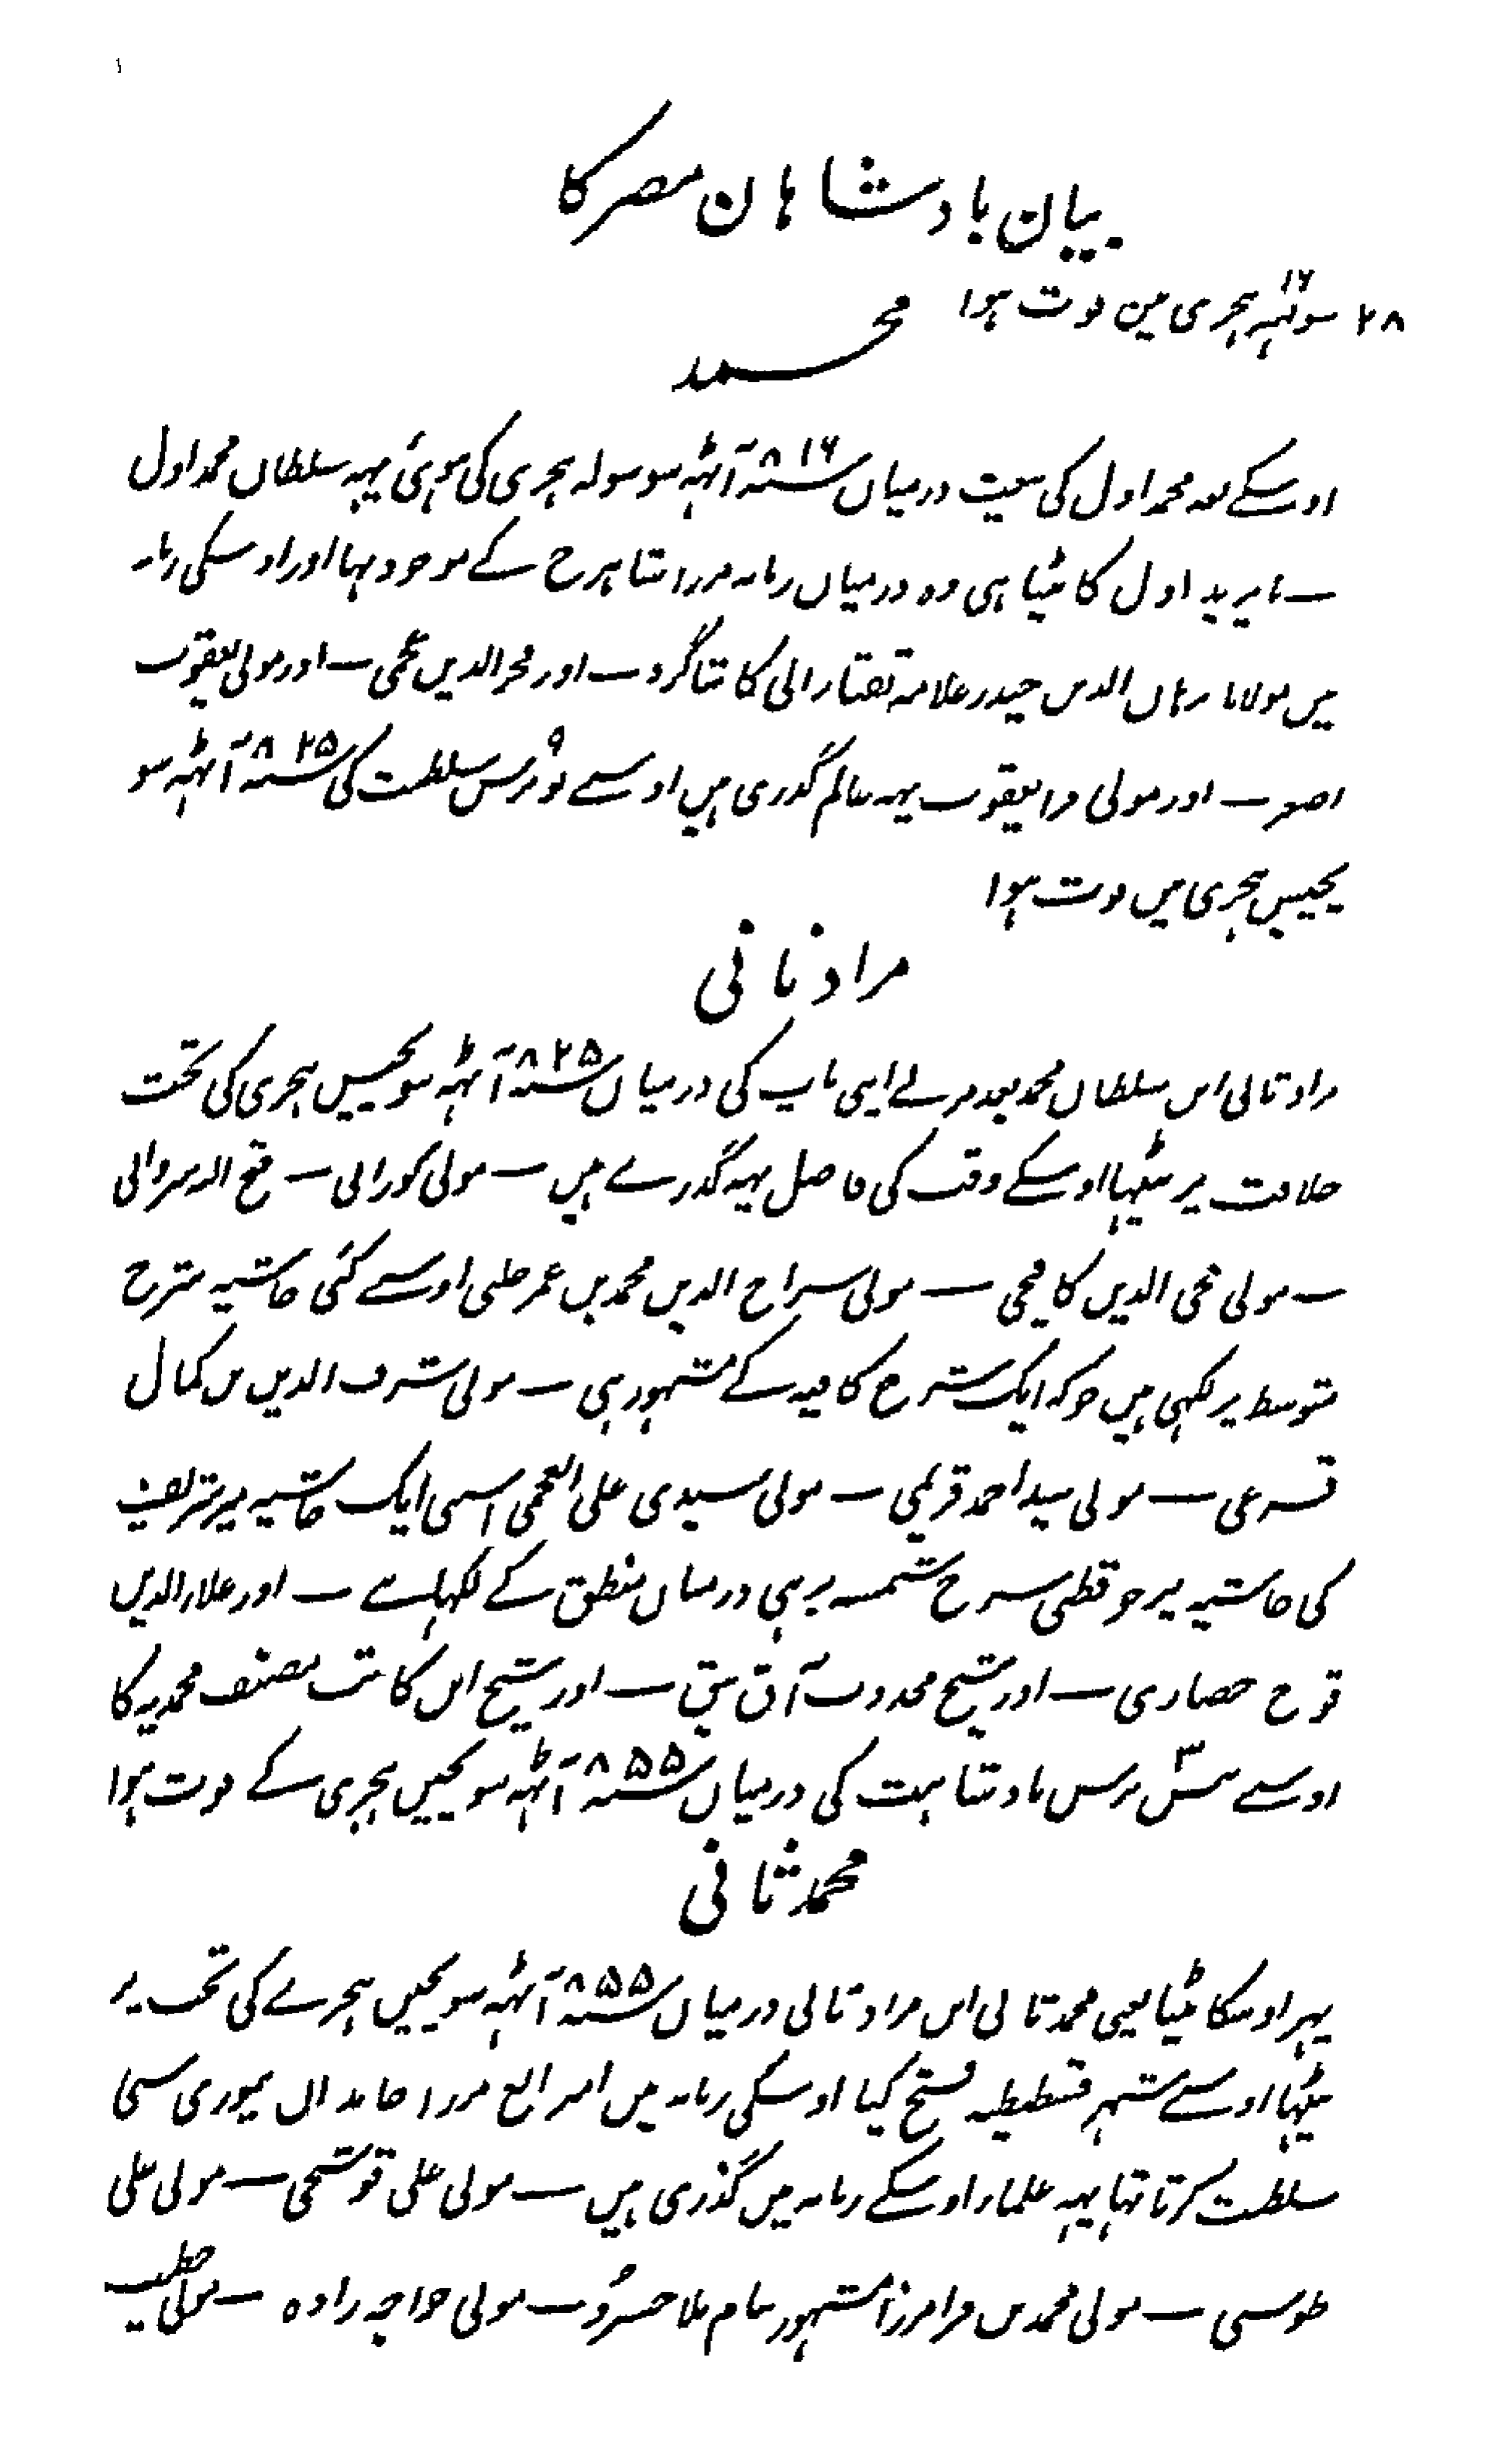 بیان بادشاہان مصر کا
۲۸ سولہہ ۱۶ ہجری مین فوت ہوا
محمد
اوسکے بعد محمد اول کی بیعت درمیان سنہ ۸۱۶ آٹھہ سو سولہ ہجری کی ہوئی یہہ سلطان محمد اول
بایزید اول کا بیٹا ہی وہ درمیان زمانہ مرزا شاہرخ کے موجود تہا اور اوسکی زمانہ
میں مولانا برہان الدین حیدر علامہ تفتازانی کا شاگرد — اور فخر الدین عجمی — اور مولی یعقوب
اصفر — اور مولی قرا یعقوب یہہ عالم گذری ہیں اوسے نو ۹ برس سلطنت کی سنہ ۸۲۵ آٹھہ سو
پچیس ہجری میں فوت ہوا
مراد ثانی
مراد ثانی ابن سلطان محمد بعد مرنے اپنی باپ کی درمیان سنہ ۸۲۵ آٹھہ سو پچیس ہجری کی تخت
خلافت پر بیٹھا اوسکے وقت کی فاضل یہہ گذرے ہیں — مولی کورانی — فتح اللہ شروانی
— مولی محی الدین کافیجی — مولی سراج الدین محمد بن عمر حلبی اوسے کئی حاشیہ شرح
متوسط پر لکہی ہیں جو کہ ایک شرح کافیہ کے مشہور ہی — مولی شرف الدین بن کمال
قریمی — مولی سید احمد قریمی — مولی سیدی علی العجمی اسی ایک حاشیہ میر شریف
کی حاشیہ پر جو قطبی شرح شمسیہ پر ہی درمیان منطق کے لکہا ہے — اور علاء الدین
قوج حصاری — اور شیخ مجدوب آق بیق — اور شیخ ابن کاتب مصنف محمدیہ کا
اوسے تیس برس بادشاہت کی درمیان سنہ ۸۵۵ آٹھہ سو پچپن ہجری کے فوت ہوا
محمد ثانی
پہر اوسکا بیٹا یعنی محمد ثانی ابن مراد ثانی درمیان سنہ ۸۵۵ آٹھہ سو پچپن ہجرے کی تخت پر
بیٹھا اوسے شہر قسطنطنیہ فتح کیا اوسکی زمانہ میں مرزا خاندان تیموری سی
سلطنت کرتا تہا یہہ علماء اوسکے زمانہ میں گذری ہیں — مولی علی قوشجی — مولی علی
طوسی — مولی محمد بن فرامرز مشہور بنام ملا خسرو — مولی خواجہ زادہ — مولی خطیب